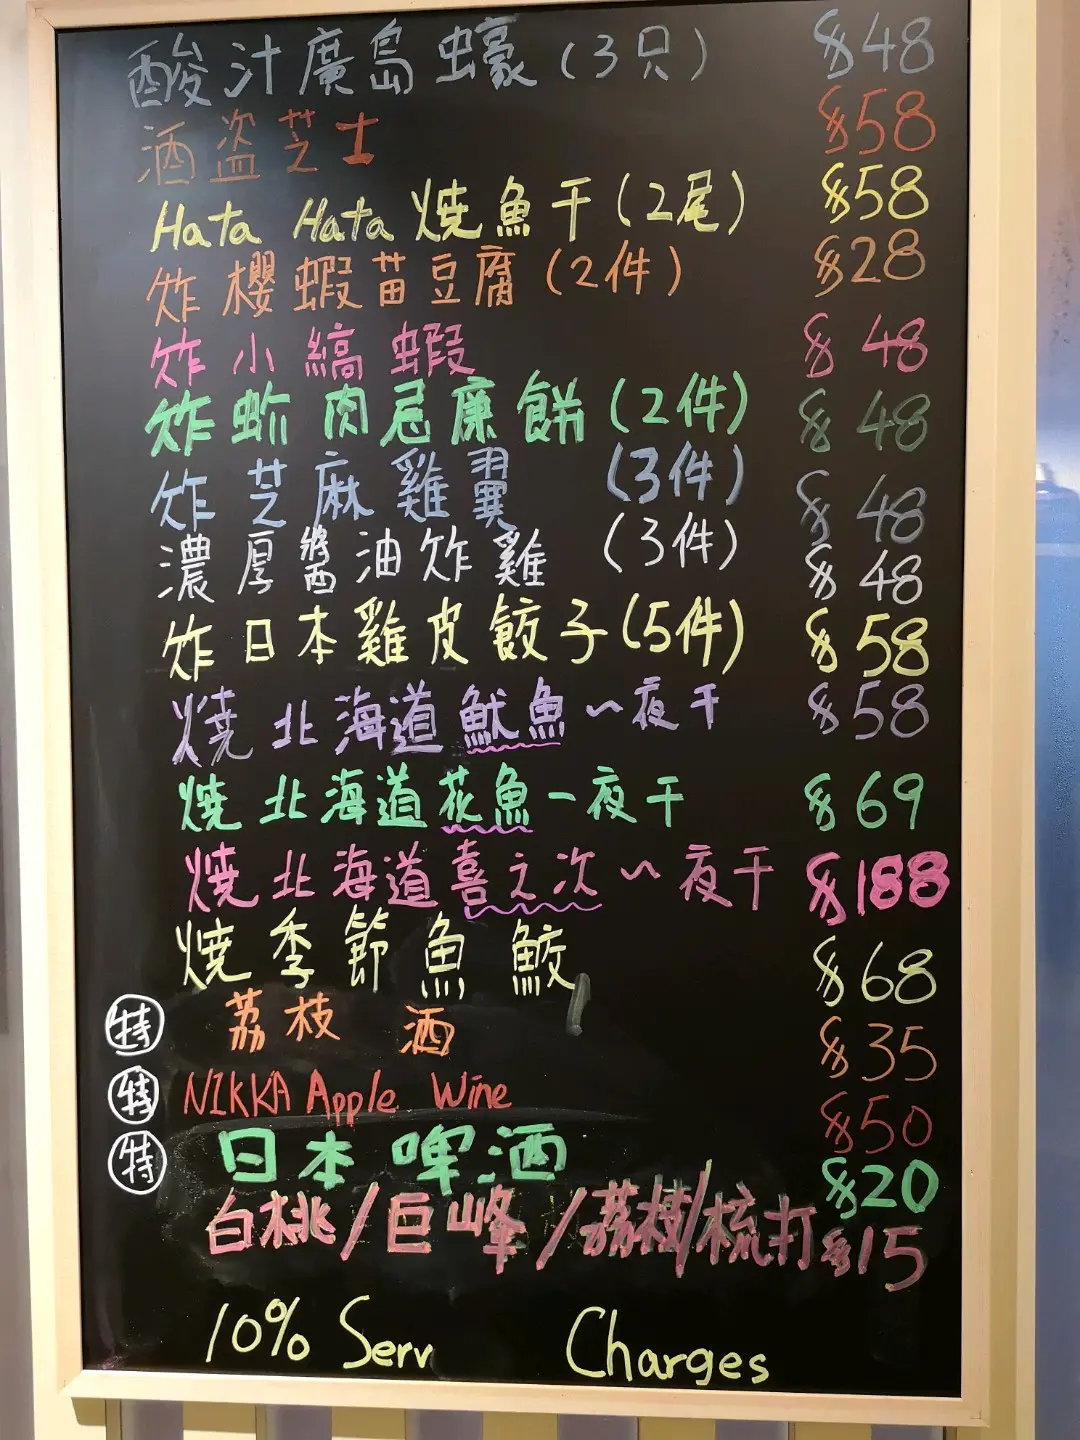 酸汁廣島蠔(3只) $48
酒盗芝士 $58
Hata Hata 燒魚干(2尾) $58
炸櫻蝦苗豆腐(2件) $28
炸小縞蝦 $48
炸蚧肉忌廉餅(2件) $48
炸芝麻雞翼 (3件) $48
濃厚醬油炸雞 (3件) $48
炸日本雞皮餃子(5件) $58
燒北海道魷魚一夜干 $58
燒北海道花魚一夜干 $69
燒北海道喜之次一夜干 $188
燒季節魚鮫 $68
特 荔枝酒 $35
特 NIKKA Apple Wine $50
特 日本啤酒 $20
白桃/巨峰/荔枝/梳打 $15
10% Serv Charges